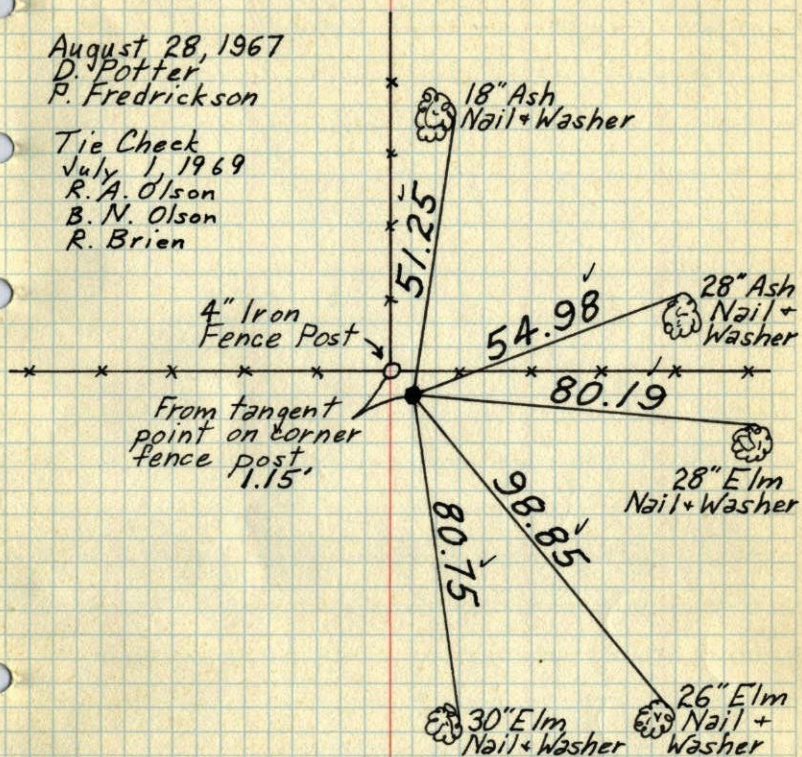 August 28, 1967
D. Potter
P. Fredrickson
Tie Check
July 1, 1969
R. A. Olson
B. N. Olson
R. Brien
18" Ash
Nail + Washer
51.25
4" Iron
Fence Post
28" Ash
Nail +
Washer
54.98
80.19
From tangent
point on corner
fence post
1.15'
28" Elm
Nail + Washer
98.85
80.75
26" Elm
Nail +
Washer
30" Elm
Nail + Washer